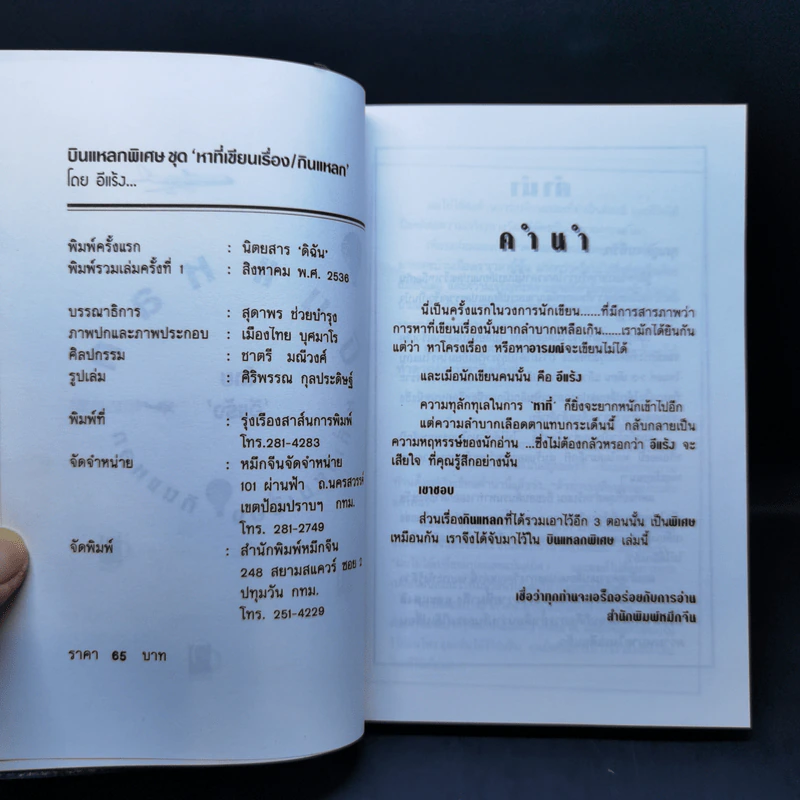 บินแหลกพิเศษ ชุด 'หาที่เขียนเรื่อง/กินแหลก'
โดย อีแร้ง...
พิมพ์ครั้งแรก : นิตยสาร 'ดิฉัน'
พิมพ์รวมเล่มครั้งที่ 1 : สิงหาคม พ.ศ. 2536
บรรณาธิการ : สุดาพร ช่วยบำรุง
ภาพปกและภาพประกอบ : เมืองไทย บุศมาโร
ศิลปกรรม : ชาตรี มณีวงศ์
รูปเล่ม : ศิริพรรณ กุลประดิษฐ์
พิมพ์ที่ : รุ่งเรืองสาส์นการพิมพ์
โทร.281-4283
จัดจำหน่าย : หมึกจีนจัดจำหน่าย
101 ผ่านฟ้า ถ.นครสวรรค์
เขตป้อมปราบฯ กทม.
โทร. 281-2749
จัดพิมพ์ : สำนักพิมพ์หมึกจีน
248 สยามสแควร์ ซอย 2
ปทุมวัน กทม.
โทร. 251-4229
ราคา 65 บาท
คำนำ
นี่เป็นครั้งแรกในวงการนักเขียน......ที่มีการสารภาพว่า
การหาที่เขียนเรื่องนั้นยากลำบากเหลือเกิน.....เรามักได้ยินกัน
แต่ว่า หาโครงเรื่อง หรือหาอารมณ์จะเขียนไม่ได้
และเมื่อนักเขียนคนนั้น คือ อีแร้ง
ความทุลักทุเลในการ 'หาที่' ก็ยิ่งจะยากหนักเข้าไปอีก
แต่ความลำบากเลือดตาแทบกระเด็นนี้ กลับกลายเป็น
ความหฤหรรษ์ของนักอ่าน ...ซึ่งไม่ต้องกลัวหรอกว่า อีแร้ง จะ
เสียใจ ที่คุณรู้สึกอย่างนั้น
เขาชอบ
ส่วนเรื่องกินแหลกที่ได้รวมเอาไว้อีก 3 ตอนนั้น เป็นพิเศษ
เหมือนกัน เราจึงได้จับมาไว้ใน บินแหลกพิเศษ เล่มนี้
เชื่อว่าทุกท่านจะเอร็ดอร่อยกับการอ่าน
สำนักพิมพ์หมึกจีน